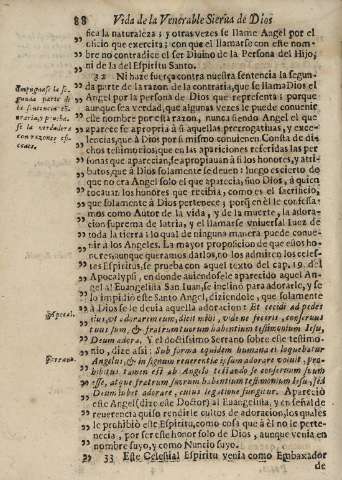 88 Vida de la Venerable Sierua de Dios
fica la naturaleza; y otras vezes se llame Angel por el
oficio que exercita; con que el llamarse con este nom-
bre no contradice el ser Diuino de la Persona del Hijo,
ni de la del Espiritu Santo.
32 Ni haze fuerça contra nuestra sentencia la segun-
da parte de la razon de la contraria, que se llama Dios el
Angel por la persona de Dios que representa: porque
aunque sea verdad, que algunas vezes le puede conuenir
este nombre por esta razon, nunca siendo Angel el que
aparece se apropria à si aquellas prerrogatiuas, y excelen-
cias, que à Dios por si mismo conuienen. Consta de di-
chos testimonios; que en las apariciones referidas las per-
sonas que aparecian, se apropiauan à si los honores, y atri-
butos, que à Dios solamente se deuen: luego es cierto de
que no era Angel solo el que aparecia, sino Dios, à quien
tocauan los honores que recibia; como es el sacrificio,
que solamente à Dios pertenece; porq̃ en èl le confessa-
mos como Autor de la vida, y de la muerte, la adora-
cion suprema de latria, y el llamarse vniuersal Iuez de
toda la tierra: lo qual de ninguna manera puede conue-
nir à los Angeles. La mayor proposicion de que estos ho-
nores, aunque queramos darlos, no los admiren los celes-
tes Espiritus, se prueba con aquel texto del cap. 19. del
Apocalypsi, en donde auiendosele aparecido aquel An-
gel al Euangelista San Iuan, se inclinò para adorarle, y se
lo impidiò este Santo Angel, diziendole, que solamente
à Dios se le deuia aquella adoracion: Et cecidi ad pedes
eius, vt adorarem eum, dicit mihi, vide ne feceris, conseruus
tuus sum, & fratrum tuorum habentium testimonium Iesu,
Deum adora. Y el doctissimo Serrano sobre este testimo-
nio, dize assi: Sub forma equidem humana ei loquebatur
Angelus, & in signum reuerentiæ ipsum adorare voluit, pro-
hibitus tamen est ab Angelo testando se conseruum suum
esse, atque fratrum suorum habentium testimonium Iesu, sed
Deum iubet adorare, cuius legatione fungitur. Apareciò
este Angel (dize este Doctor) al Euangelista, y en señal de
reuerencia quiso rendirle cultos de adoracion, los quales
le prohibiò este Espiritu, como cosa que à èl no le pertene-
cia, por ser este honor solo de Dios, aunque venia en
nombre suyo, y como Nuncio suyo.
33 Este Celestial Espiritu venia como Embaxador
de
Impugnase la se-
gunda parte de
la sentencia con-
traria, y prueba-
se la verdadera
con razones efi-
cazes.
Apocal.
Serrano.